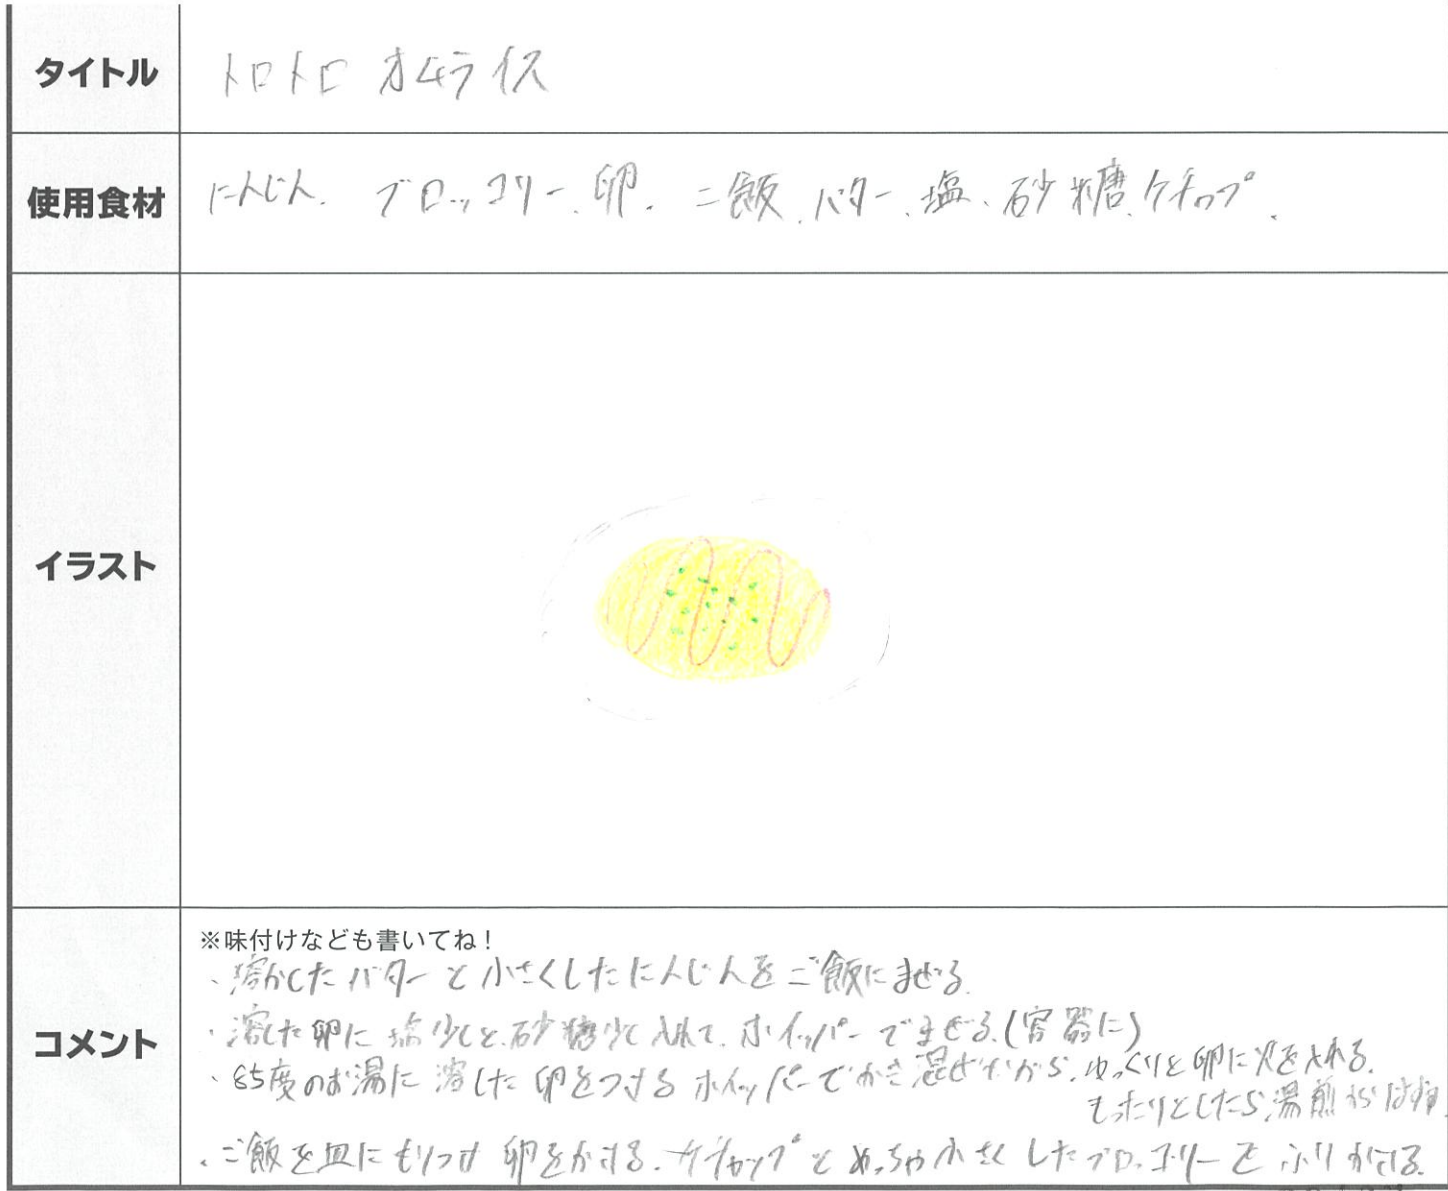 タイトル
トロトロ オムライス
使用食材
にんじん. ブロッコリー、卵. ご飯、バター、塩、砂糖、ケチャップ、
イラスト
コメント
※味付けなども書いてね！
・溶かしたバターと小さくしたにんじんをご飯にまぜる.
・溶した卵に塩少しと、砂糖少し入れて、ホイッパーでまぜる.(容器に)
・85度のお湯に溶した卵をつけるホイッパーでかき混ぜながら、ゆっくりと卵に火を入れる.
もったりとしたら湯煎からはずす
・ご飯を皿にもりつけ 卵をかける. ケチャップとめっちゃ小さくしたブロッコリーをふりかける.